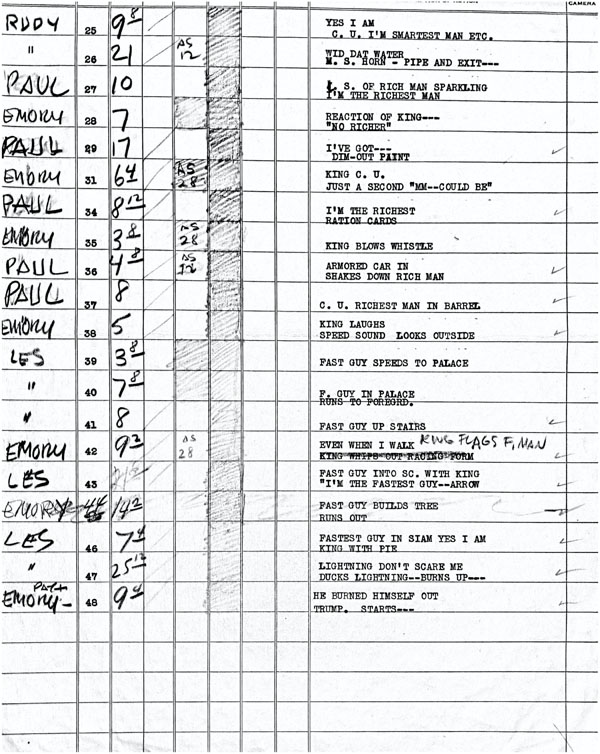 CAMERA
RUDY 25 9⁸ YES I AM
C. U. I'M SMARTEST MAN ETC.
" 26 21 AS 12 WID DAT WATER
M. S. HORN - PIPE AND EXIT---
PAUL 27 10 L. S. OF RICH MAN SPARKLING
I'M THE RICHEST MAN
EMORY 28 7 REACTION OF KING---
"NO RICHER"
PAUL 29 17 I'VE GOT---
DIM-OUT PAINT
EMORY 31 6⁴ AS 28 KING C. U.
JUST A SECOND "MM--COULD BE"
PAUL 34 8¹² I'M THE RICHEST
RATION CARDS
EMORY 35 3⁸ AS 28 KING BLOWS WHISTLE
PAUL 36 4⁸ AS 12 ARMORED CAR IN
SHAKES DOWN RICH MAN
PAUL 37 8 C. U. RICHEST MAN IN BARREL
EMORY 38 5 KING LAUGHS
SPEED SOUND LOOKS OUTSIDE
LES 39 3⁸ FAST GUY SPEEDS TO PALACE
" 40 7⁸ F. GUY IN PALACE
RUNS TO FOREGRD.
" 41 8 FAST GUY UP STAIRS
EMORY 42 9 AS 28 EVEN WHEN I WALK KING FLAGS F. MAN
KING WHIPS OUT RACING FORM
LES 43 FAST GUY INTO SC. WITH KING
"I'M THE FASTEST GUY--ARROW
EMORY 44 14² FAST GUY BUILDS TREE
RUNS OUT
LES 46 7⁴ FASTEST GUY IN SIAM YES I AM
KING WITH PIE
" 47 25¹² LIGHTNING DON'T SCARE ME
DUCKS LIGHTNING--BURNS UP---
EMORY- 48 9⁴ HE BURNED HIMSELF OUT
TRUMP. STARTS---